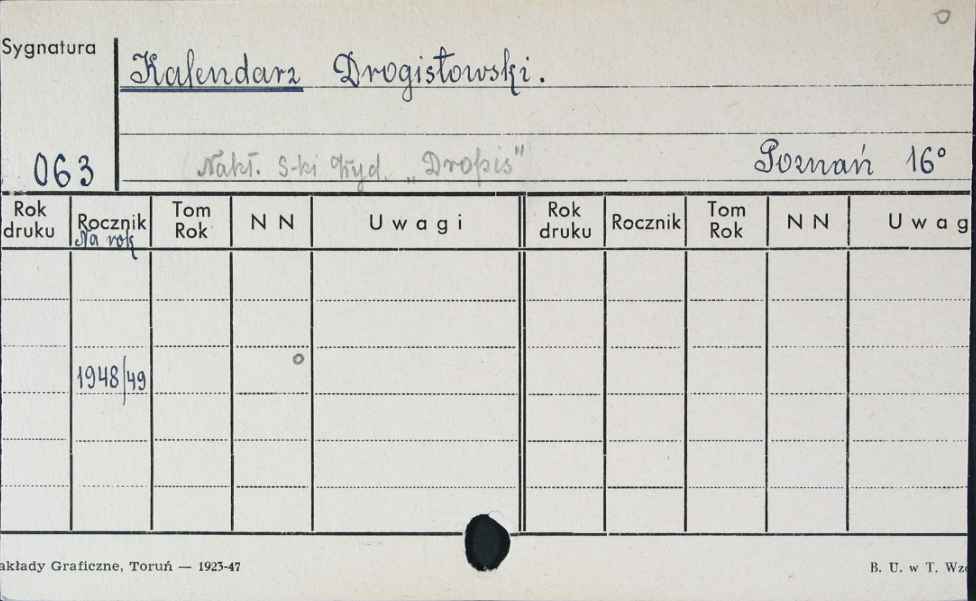 Sygnatura
Kalendarz Drogistowski.
063
Nakł. S-ki Wyd. „Dropis" Poznań 16°
Rok druku Rocznik Tom Rok N N Uwagi Rok druku Rocznik Tom Rok N N Uwag
Na rok
1948/49
akłady Graficzne, Toruń — 1923-47 B. U. w T. Wzó